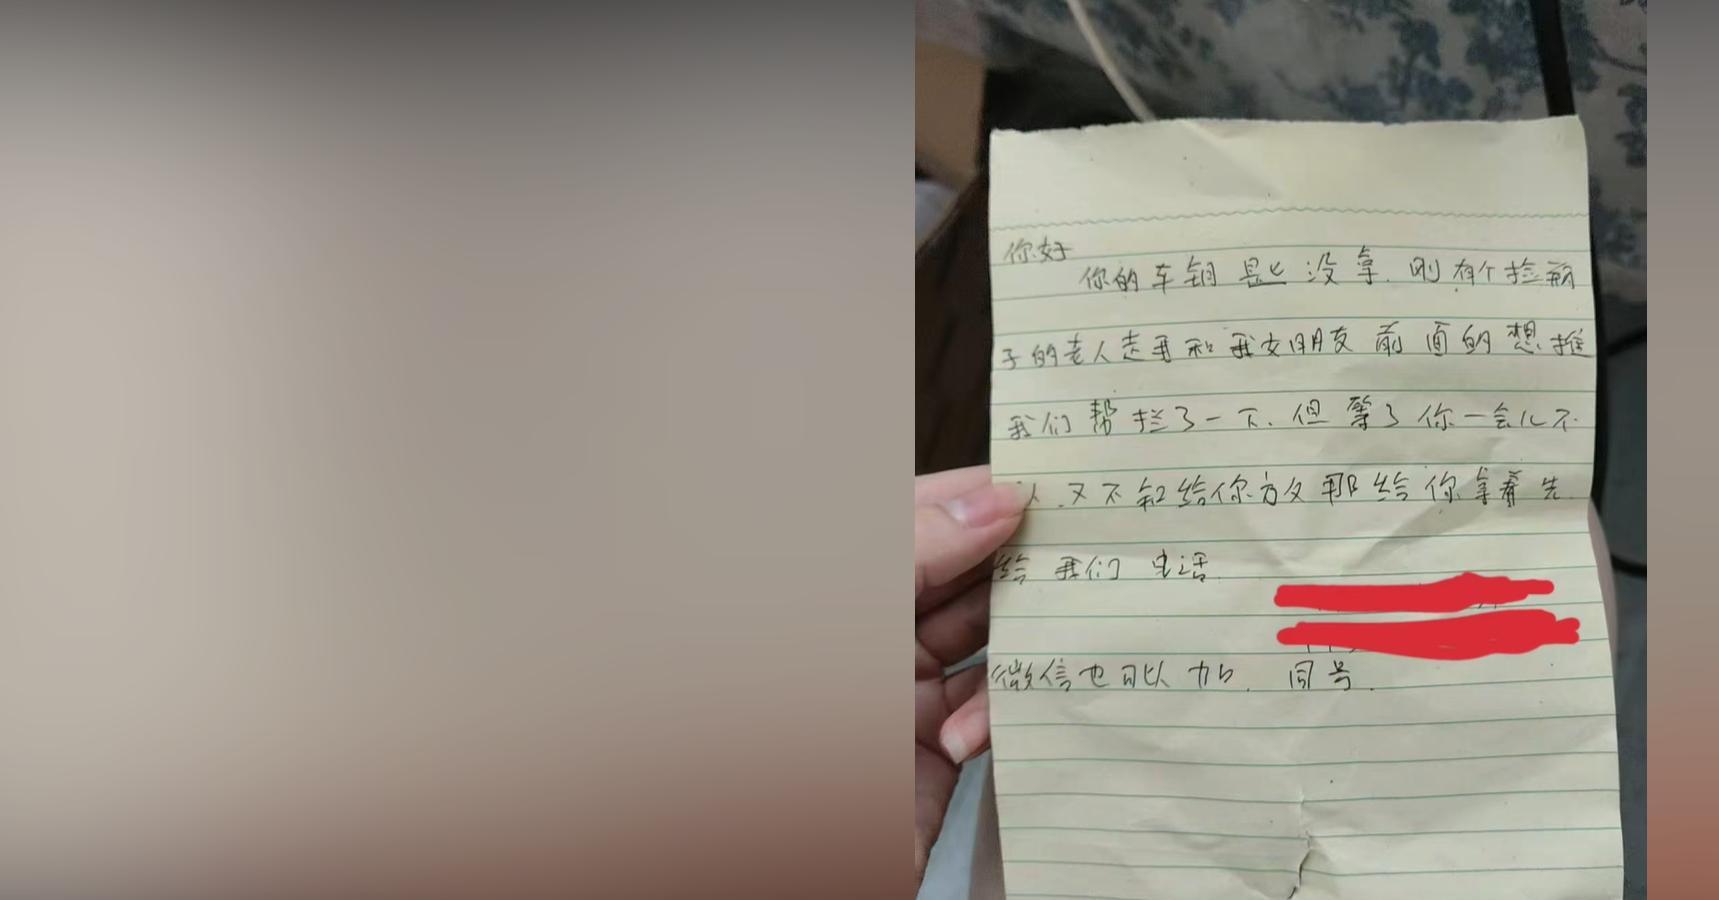 你好
你的车钥匙没拿.刚有个捡瓶
子的老人走再和我女朋友前面的想推
我们帮拦了一下.但等了你一会儿不
又不知给你方又那给你拿着先.
给我们电话
微信也可以加.同号.